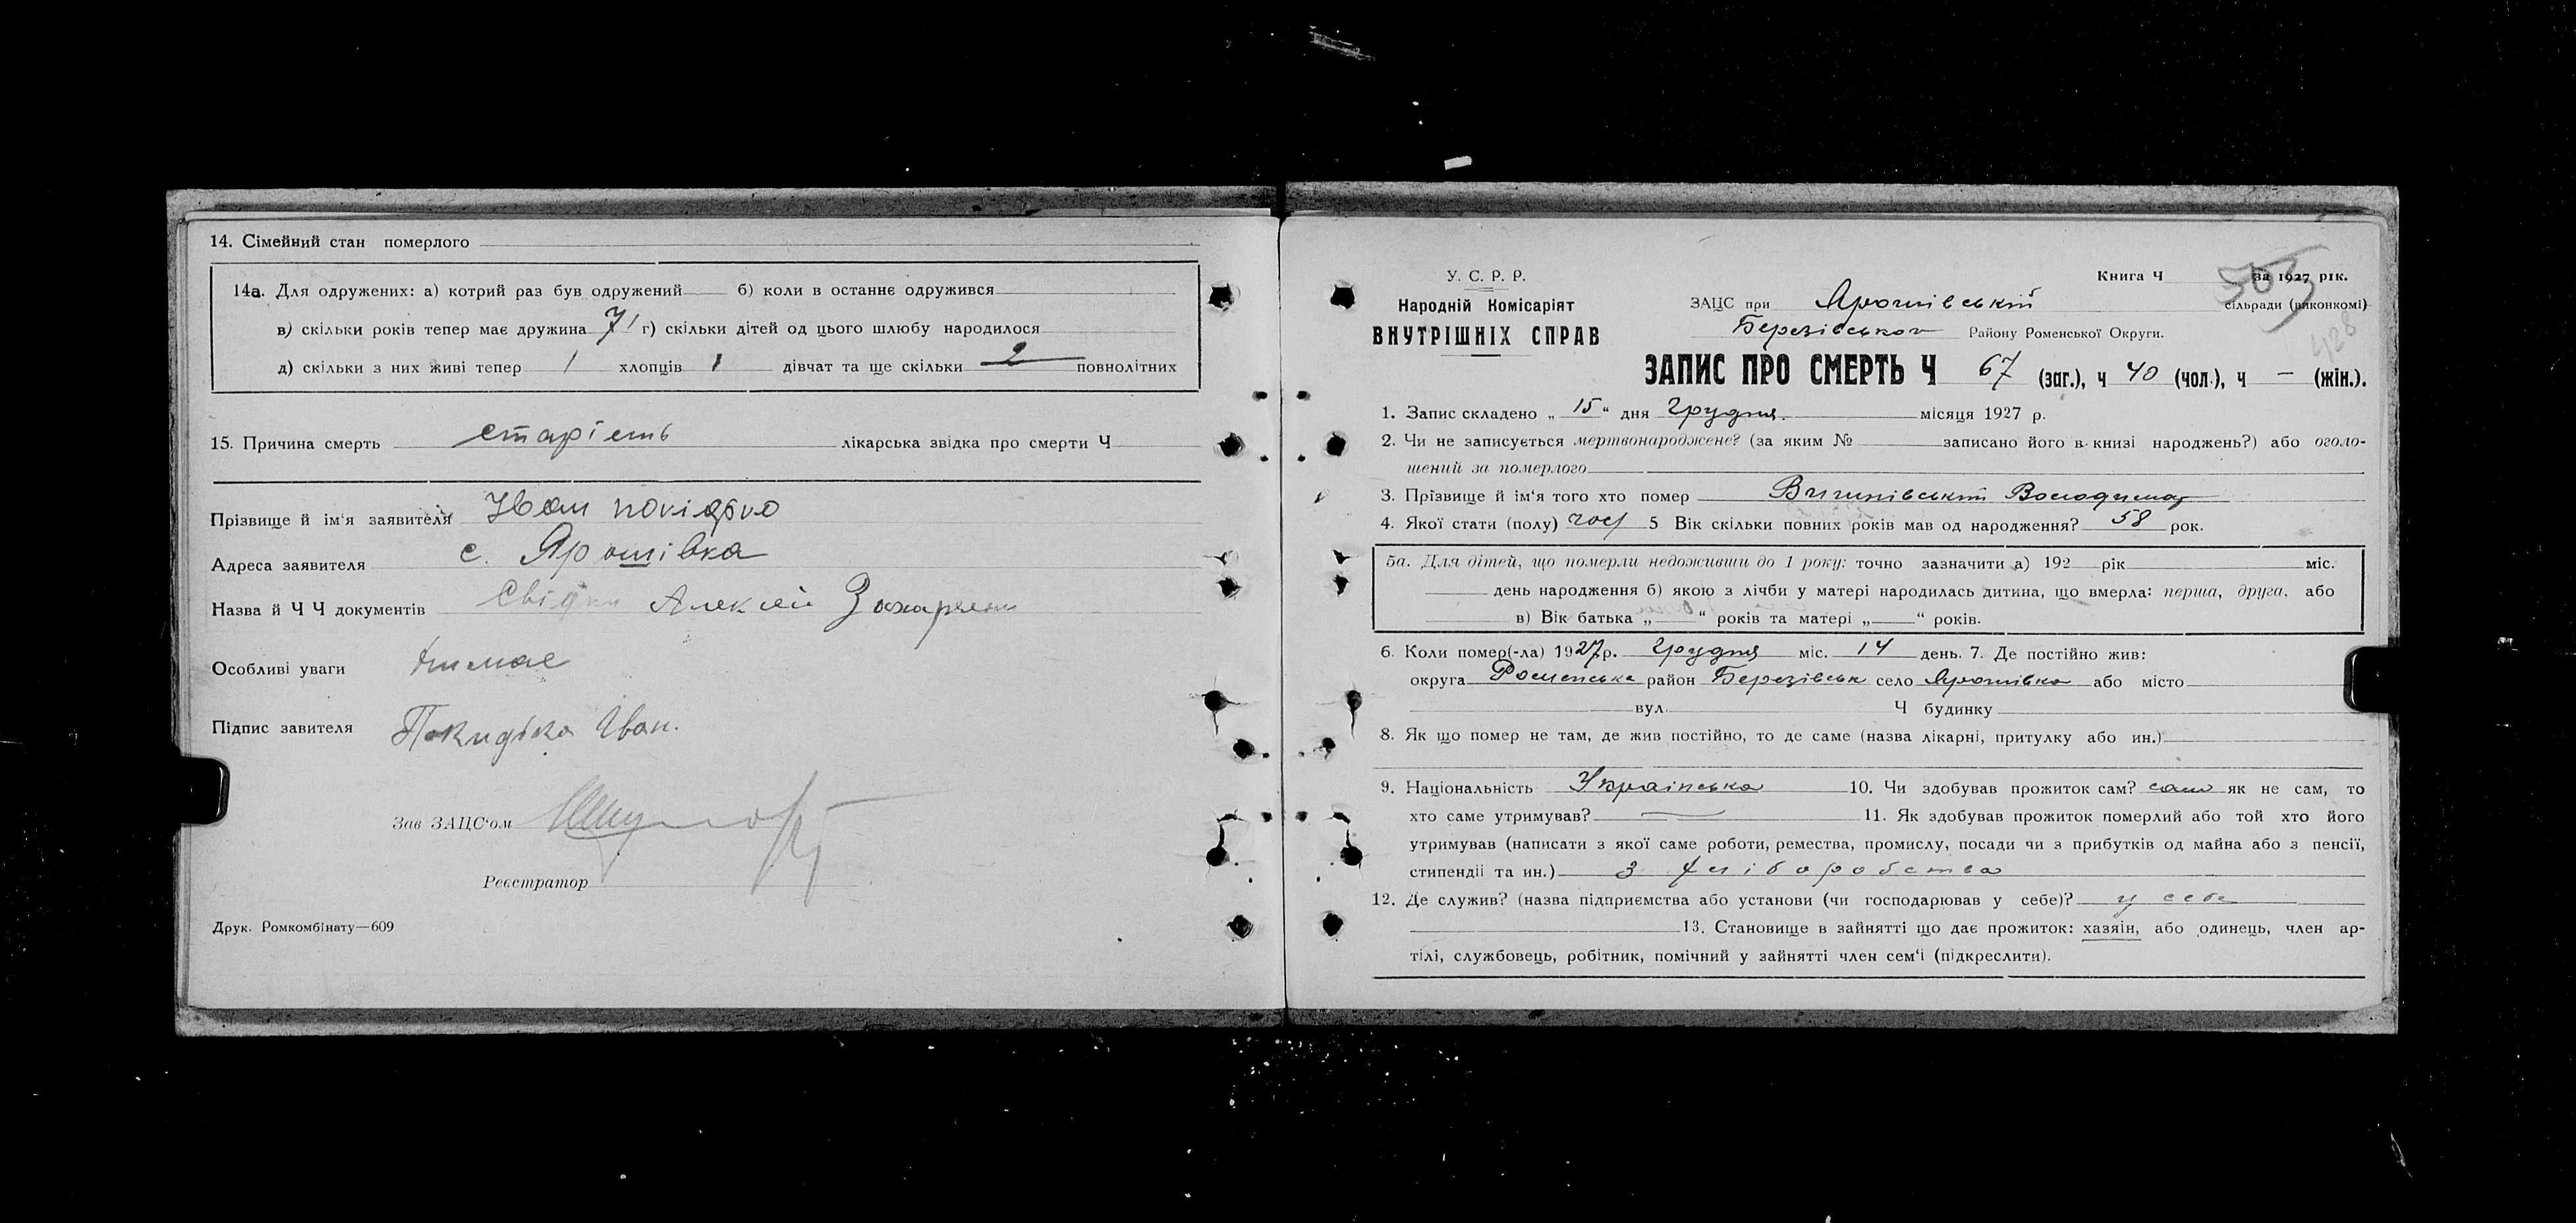 14. Сімейний стан померлого
14а. Для одружених: а) котрий раз був одружений б) коли в останнє одружився
в) скільки років тепер має дружина 71 г) скільки дітей од цього шлюбу народилося
д) скільки з них живі тепер 1 хлопців 1 дівчат та ще скільки 2 повнолітних
15. Причина смерть старість лікарська звідка про смерти Ч
Прізвище й ім'я заявителя Іван
Адреса заявителя с. Ярошівка
Назва й Ч Ч документів Свідки Алексей Захарченко
Особливі уваги
Підпис завителя Покидько Іван.
Зав ЗАЦС'ом
Реєстратор
Друк. Ромкомбінату—609
У. С. Р. Р.
Народній Комісаріят
ВНУТРІШНІХ СПРАВ
Книга Ч за 1927 рік.
505
428
ЗАЦС при Ярошівській сільради (виконкомі)
Березівського Району Роменської Округи.
ЗАПИС ПРО СМЕРТЬ Ч 67 (заг.), ч 40 (чол.), ч — (жін.).
1. Запис складено „ 15 “ дня Грудня. місяця 1927 р.
2. Чи не записується мертвонароджене? (за яким № записано його в книзі народжень?) або оголо-
шений за померлого
3. Прізвище й ім'я того хто помер Володимир
4. Якої стати (полу) чол 5 Вік скільки повних років мав од народження? 58 рок.
5а. Для дітей, що померли недоживши до 1 року: точно зазначити а) 192 рік міс.
день народження б) якою з лічби у матері народилась дитина, що вмерла: перша, друга, або
в) Вік батька „ “ років та матері „ “ років.
6. Коли помер(-ла) 1927р. Грудня міс. 14 день. 7. Де постійно жив:
округа Роменська район Березівськ село Ярошівка або місто
вул. Ч будинку
8. Як що помер не там, де жив постійно, то де саме (назва лікарні, притулку або ин.)
9. Національність Українська 10. Чи здобував прожиток сам? сам як не сам, то
хто саме утримував? — 11. Як здобував прожиток померлий або той хто його
утримував (написати з якої саме роботи, ремества, промислу, посади чи з прибутків од майна або з пенсії,
стипендії та ин.) З хліборобства
12. Де служив? (назва підприємства або установи (чи господарював у себе)? у себе
13. Становище в зайнятті що дає прожиток: хазяін, або одинець, член ар-
тілі, службовець, робітник, помічний у зайнятті член сем'ї (підкреслити).